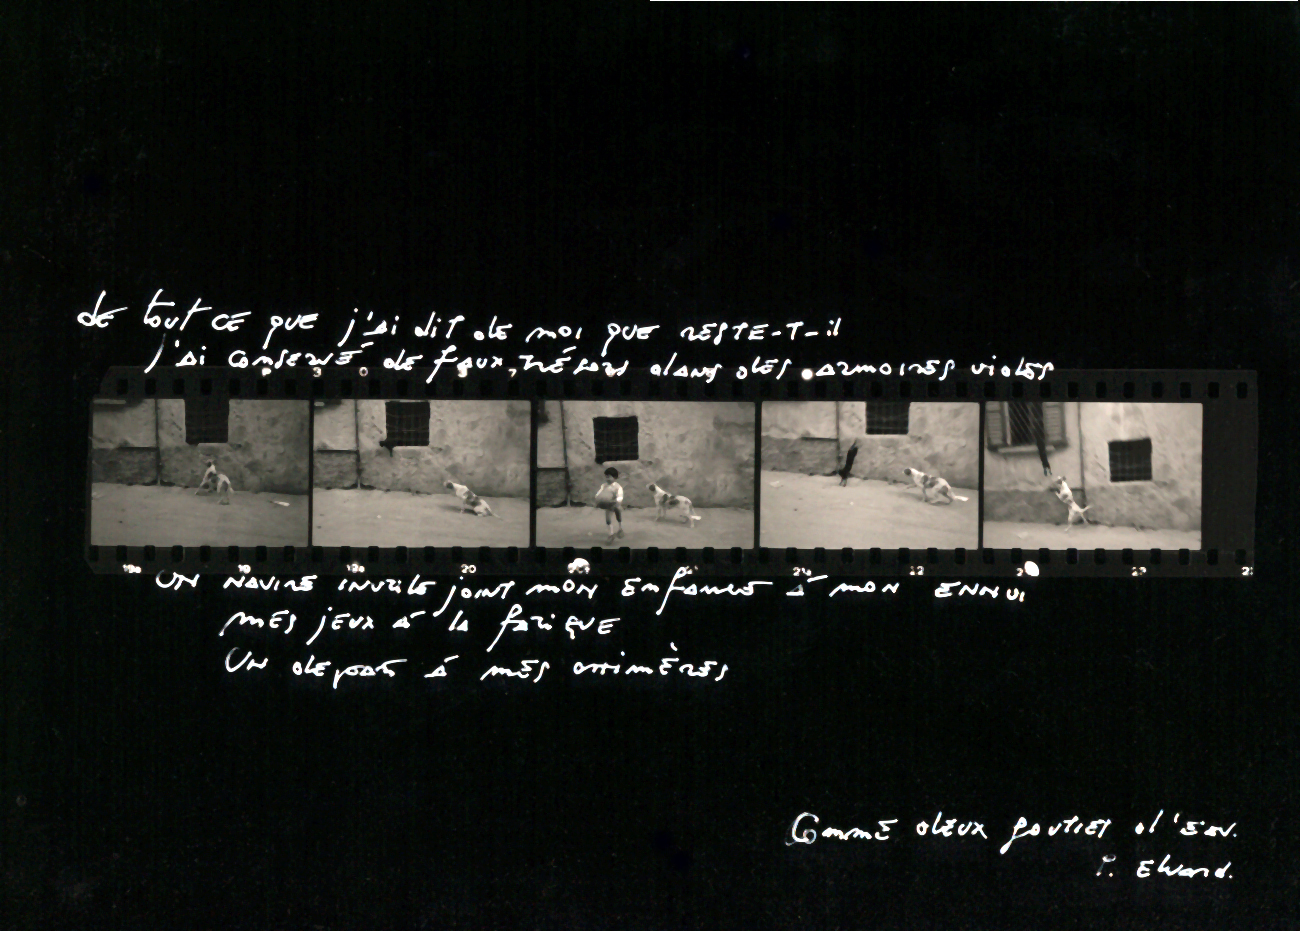 de tout ce que j'ai dit de moi que reste-t-il
j'ai conservé de faux trésors dans des armoires vides
Un navire inutile joint mon enfance à mon ennui
mes jeux à la fatigue
Un depart à mes chimères
Comme deux gouttes d'eau.
P. Eluard.